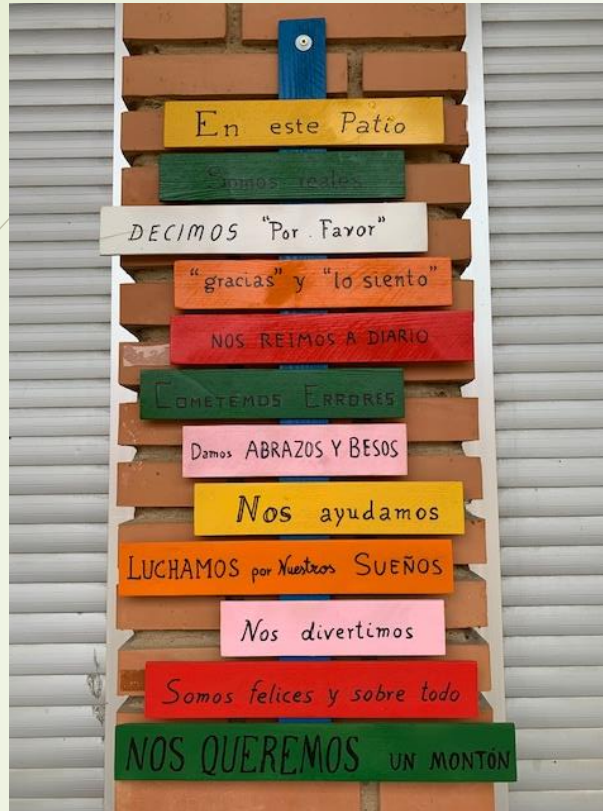 En este Patio
Somos reales
DECIMOS "Por Favor"
"gracias" y "lo siento"
NOS REIMOS A DIARIO
COMETEMOS ERRORES
Damos ABRAZOS Y BESOS
Nos ayudamos
LUCHAMOS por Nuestros SUEÑOS
Nos divertimos
Somos felices y sobre todo
NOS QUEREMOS UN MONTÓN